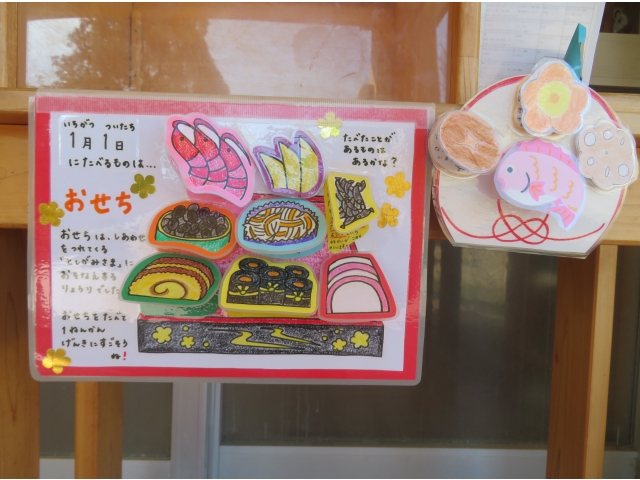 いちがつ ついたち
1月1日
にたべるものは…
おせち
おせちは、しあわせ
をつれてくる
「としがみさま」に
おそなえする
りょうりでした
おせちをたべて
1ねんかん
げんきにすごそう
ね!
たべたことが
あるものは
あるかな?